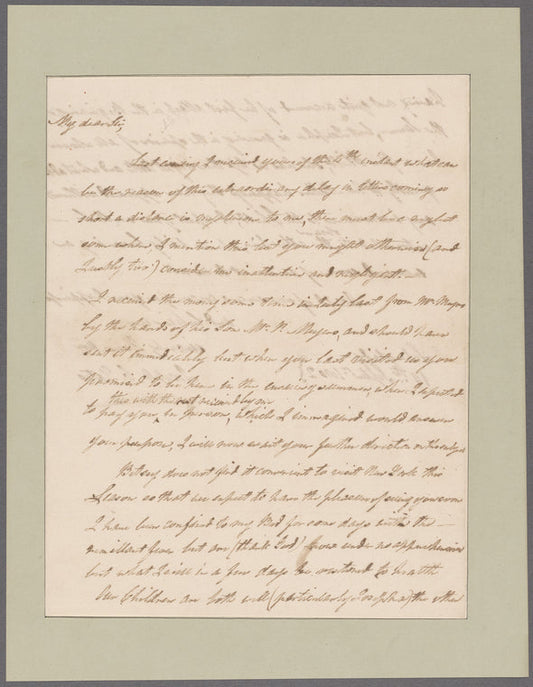 My dear Sir,
Last evening I received yours of the 4th instant what can
be the reason of this extraordinary delay in letters coming so
short a distance is mysterious to me, there must be a neglect
some where, I mention this lest you might otherwise (and
justly too) consider me inattentive and negligent. —
I received the money some time in July last from Mr Myers
by the hands of his Son Mr. Myers, and should have
sent it immediately but when you last visited us you
promised to be here in the ensuing summer, when I expected
this with the rent received by me
to pay you in person, which I immagined would answer
your purpose, I will now await your further direction on the subject
Betsey does not find it convenient to visit New York this
Season so that we expect to have the pleasure of seeing you soon
I have been confined to my Bed for some days with the —
remittent fever but am (thank God) now under no apprehension
but what I will in a few days be restored to health
Our Children are both well (particularly Josepha) the other